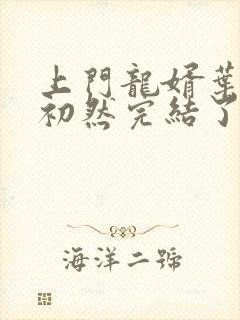 上門龍婿葉
初然完結了
海洋二號